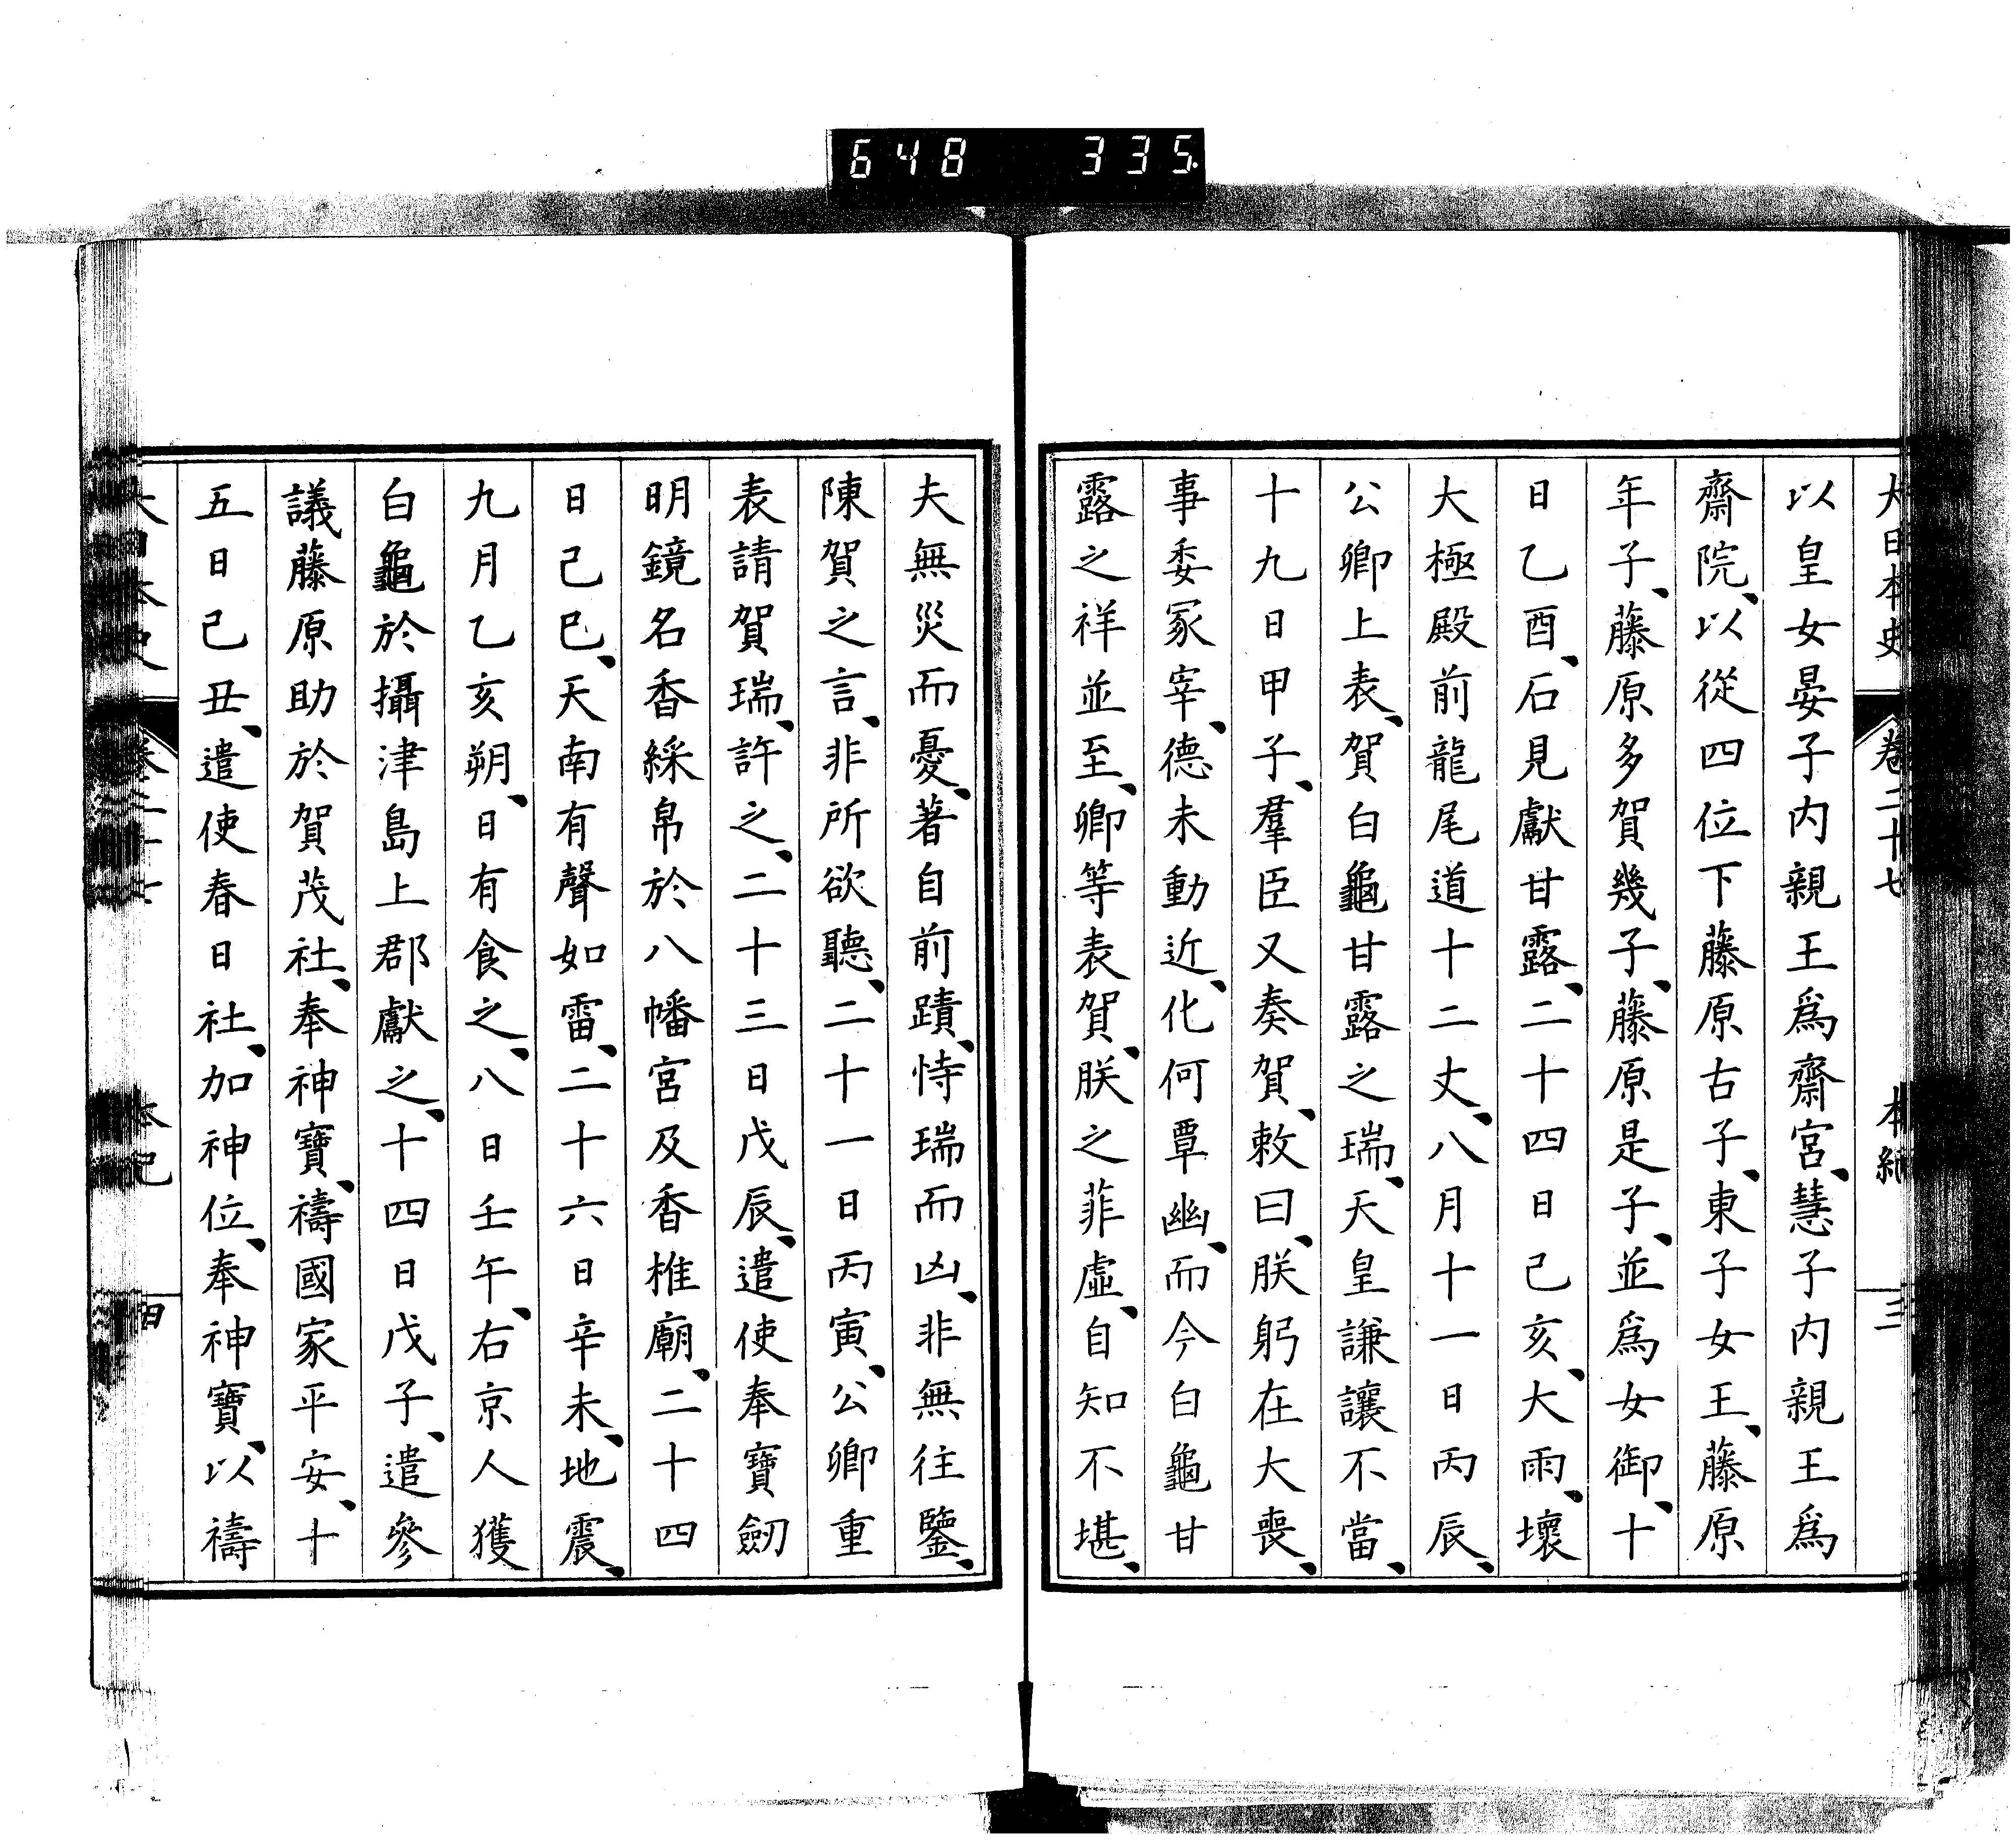 648 335
大日本史 卷二十七 本紀 三
以皇女晏子内親王爲齋宮、慧子内親王爲
齋院、以從四位下藤原古子、東子女王、藤原
年子、藤原多賀幾子、藤原是子、並爲女御、十
日乙酉、石見獻甘露、二十四日己亥、大雨、壞
大極殿前龍尾道十二丈、八月十一日丙辰、
公卿上表、賀白龜甘露之瑞、天皇謙讓不當、
十九日甲子、羣臣又奏賀、敕曰、朕躬在大喪、
事委冢宰、德未動近、化何覃幽、而今白龜甘
露之祥並至、卿等表賀、朕之菲虛、自知不堪、
夫無災而憂、著自前蹟、恃瑞而凶、非無往鑒、
陳賀之言、非所欲聽、二十一日丙寅、公卿重
表請賀瑞、許之、二十三日戊辰、遣使奉寶劒
明鏡名香綵帛於八幡宮及香椎廟、二十四
日己巳、天南有聲如雷、二十六日辛未、地震、
九月乙亥朔、日有食之、八日壬午、右京人獲
白龜於攝津島上郡獻之、十四日戊子、遣參
議藤原助於賀茂社、奉神寶、禱國家平安、十
五日己丑、遣使春日社、加神位、奉神寶、以禱